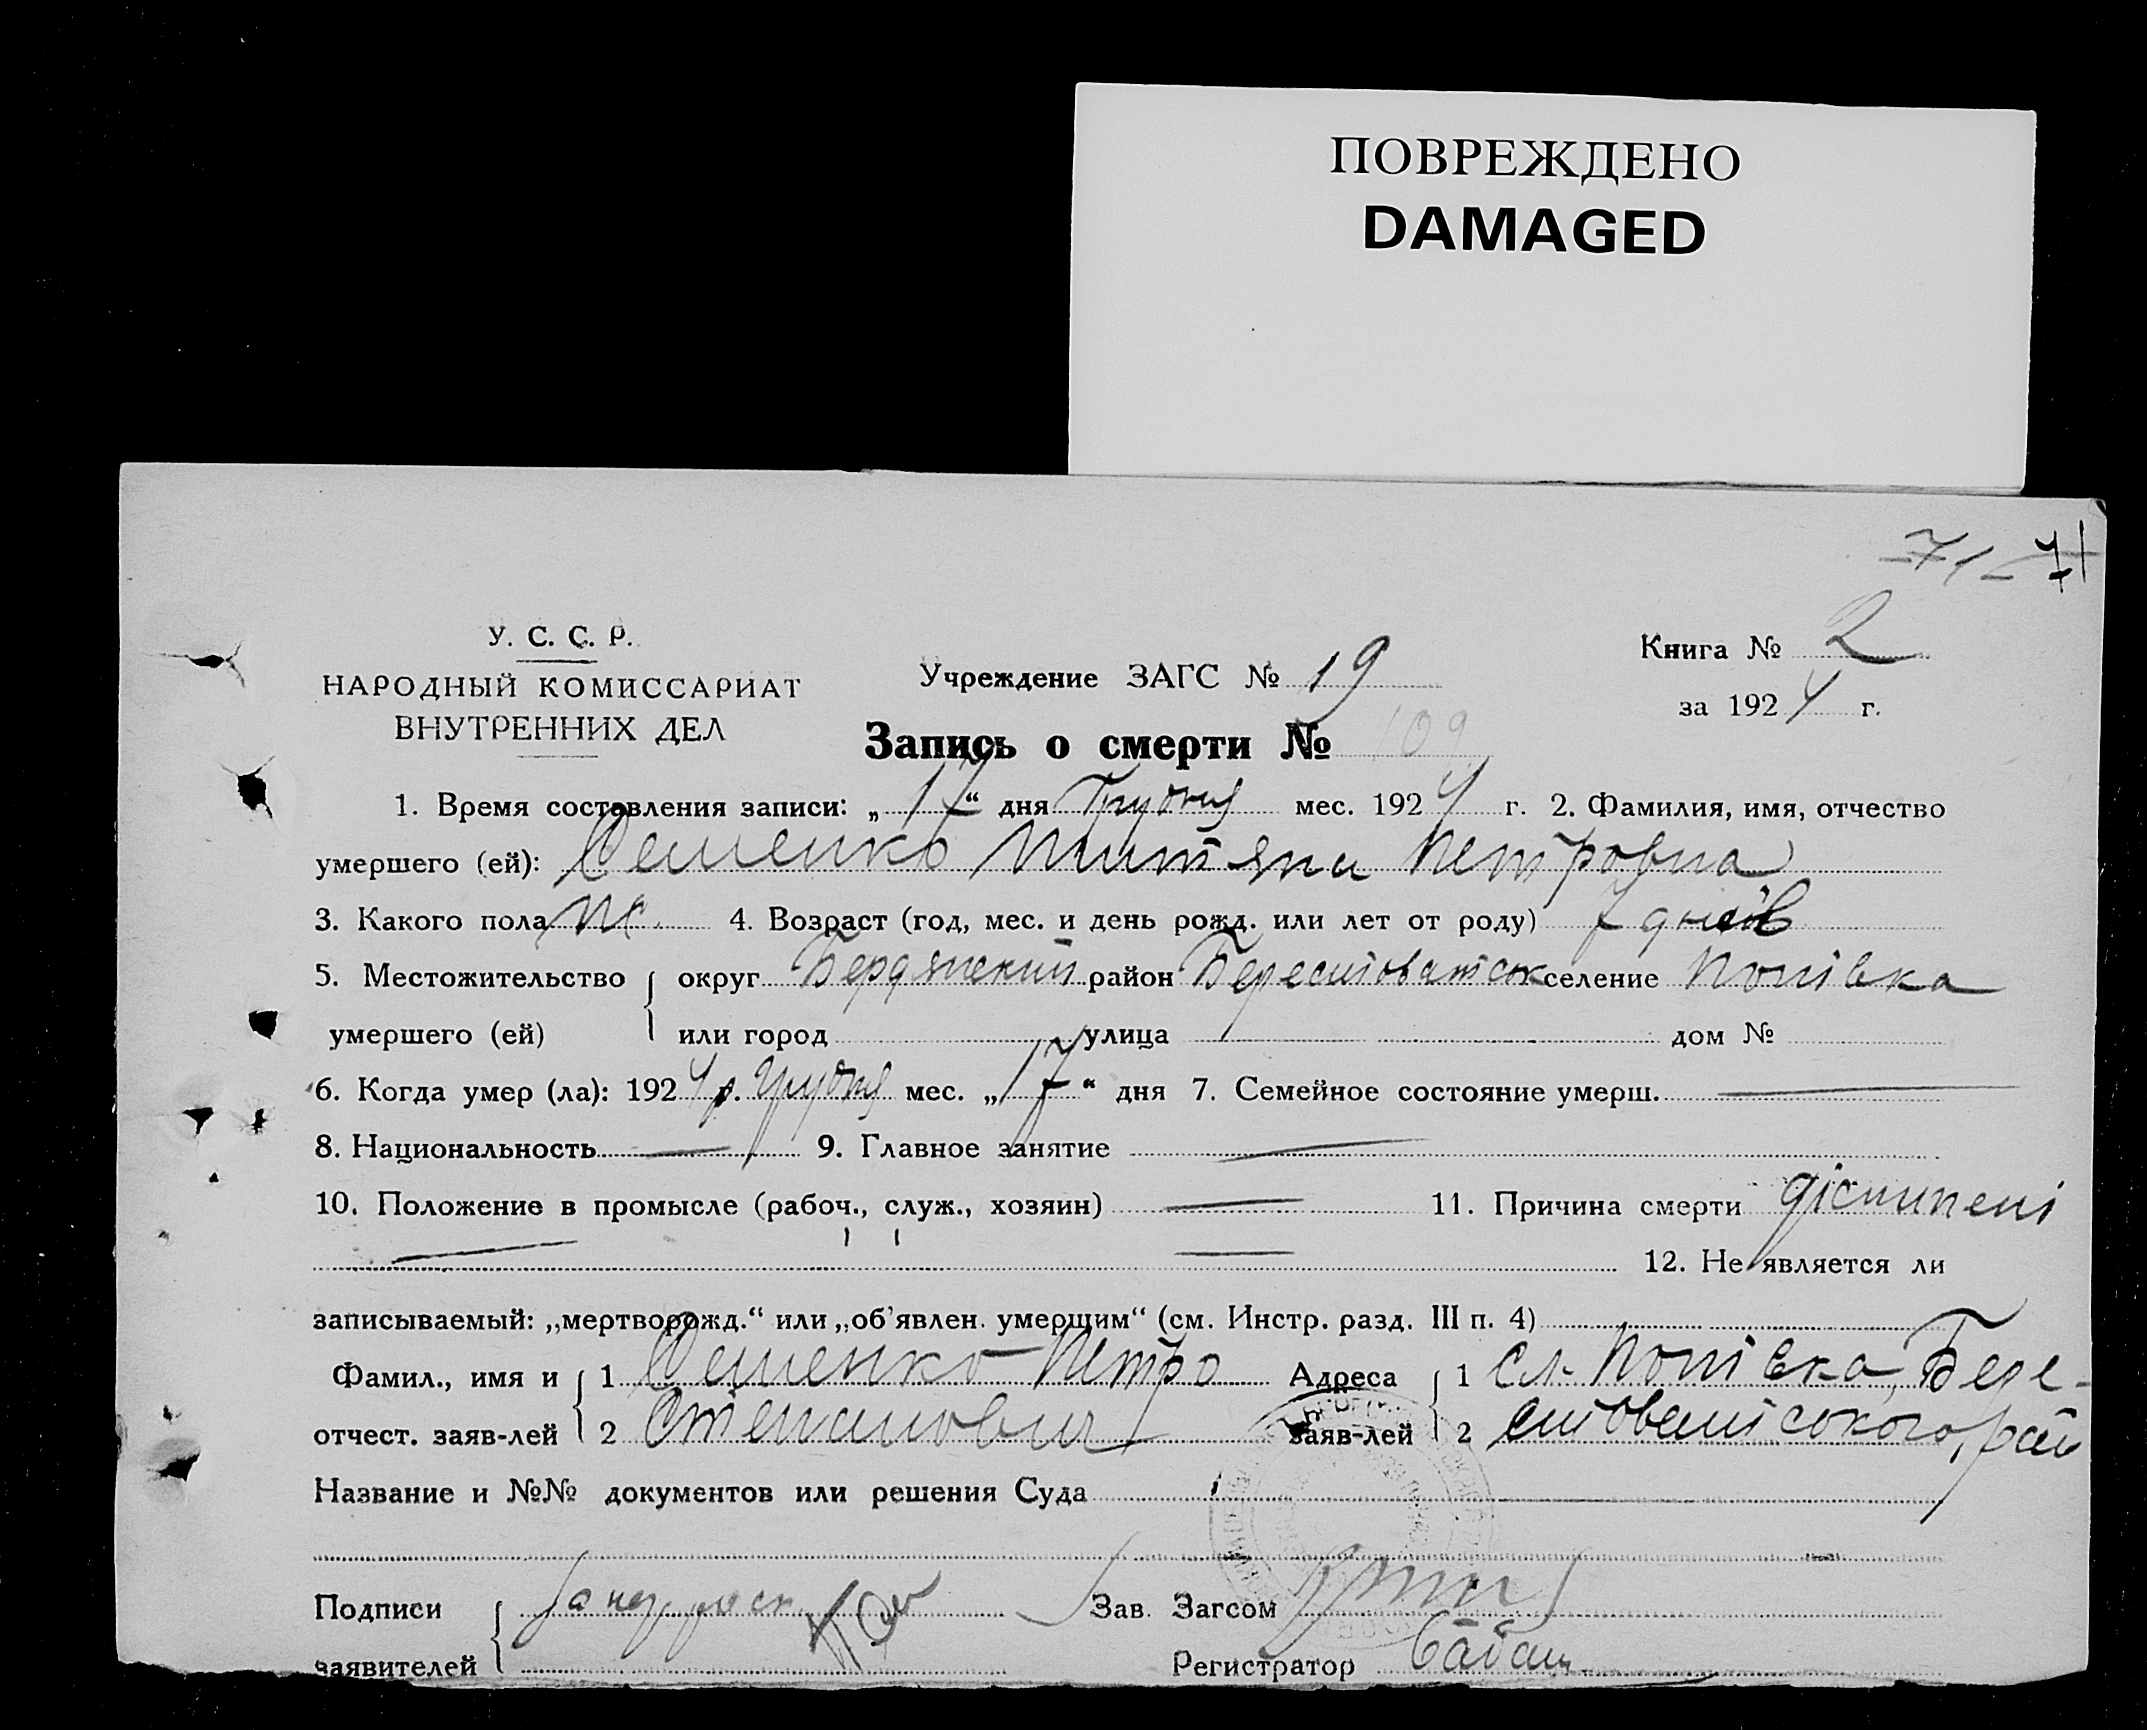 ПОВРЕЖДЕНО
DAMAGED
71 – 71
У. С. С. Р.
НАРОДНЫЙ КОМИССАРИАТ
ВНУТРЕННИХ ДЕЛ
Учреждение ЗАГС № 19
Книга № 2
за 1924 г.
Запись о смерти № 109
1. Время составления записи: „17“ дня Грудня мес. 1924 г. 2. Фамилия, имя, отчество
умершего (ей): Семенко Петровна
3. Какого пола ж. 4. Возраст (год, мес. и день рожд. или лет от роду) 7 днеів
5. Местожительство округ Бердянский район Берестоватськ селение Попівка
умершего (ей) или город улица дом №
6. Когда умер (ла): 1924 р. грудня мес. „17“ дня 7. Семейное состояние умерш. —
8. Национальность — 9. Главное занятие —
10. Положение в промысле (рабоч., служ., хозяин) — 11. Причина смерти
12. Не является ли
записываемый: „мертворожд.“ или „об'явлен. умершим“ (см. Инстр. разд. III п. 4)
Фамил., имя и 1 Семенко Петро Адреса 1 сл. Попівка, Бере-
отчест. заяв-лей 2 Степанович заяв-лей 2 стоватського рай
Название и №№ документов или решения Суда
Подписи Зав. Загсом
заявителей Регистратор